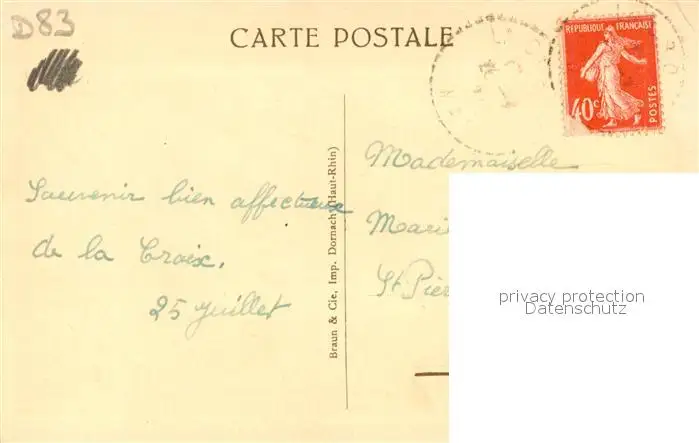 D83
CARTE POSTALE
REPUBLIQUE FRANÇAISE
40c
POSTES
Souvenir bien affectueux
de la Croix.
25 juillet
Braun & Cie, Imp. Dornach (Haut-Rhin)
Mademoiselle
St Pier
privacy protection
Datenschutz